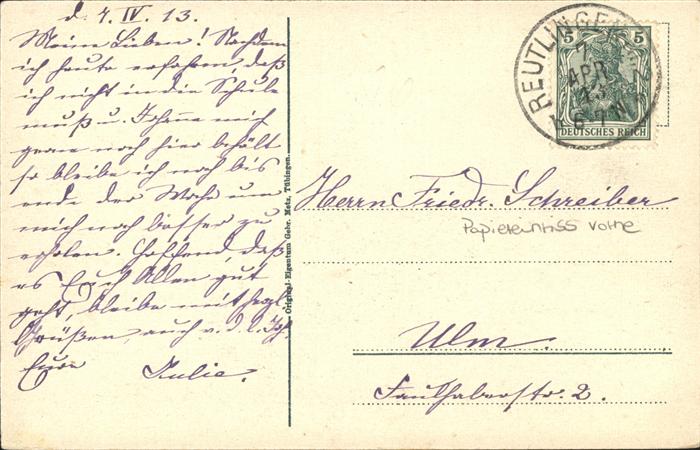 d. 7. IV. 13.
Meine Lieben! Nachdem
ich heute erfahren, daß
ich nicht in die Schule
muß u. Johanne mich
gerne noch hier behält
so bleibe ich noch bis
ende der Woche um
mich noch besser zu
erholen. Hoffend, daß
es Euch Allen gut
geht, bleibe mit herzl.
Grüßen, auch v. d. l. Joh.
Eure Julie.
Original-Eigentum Gebr. Metz, Tübingen.
REUTLINGEN
7
APR
13
6-7 N
5 5
DEUTSCHES REICH
Herrn Friedr. Schreiber
Papiereinriss vorne
Ulm.
Faulhaberstr. 2.